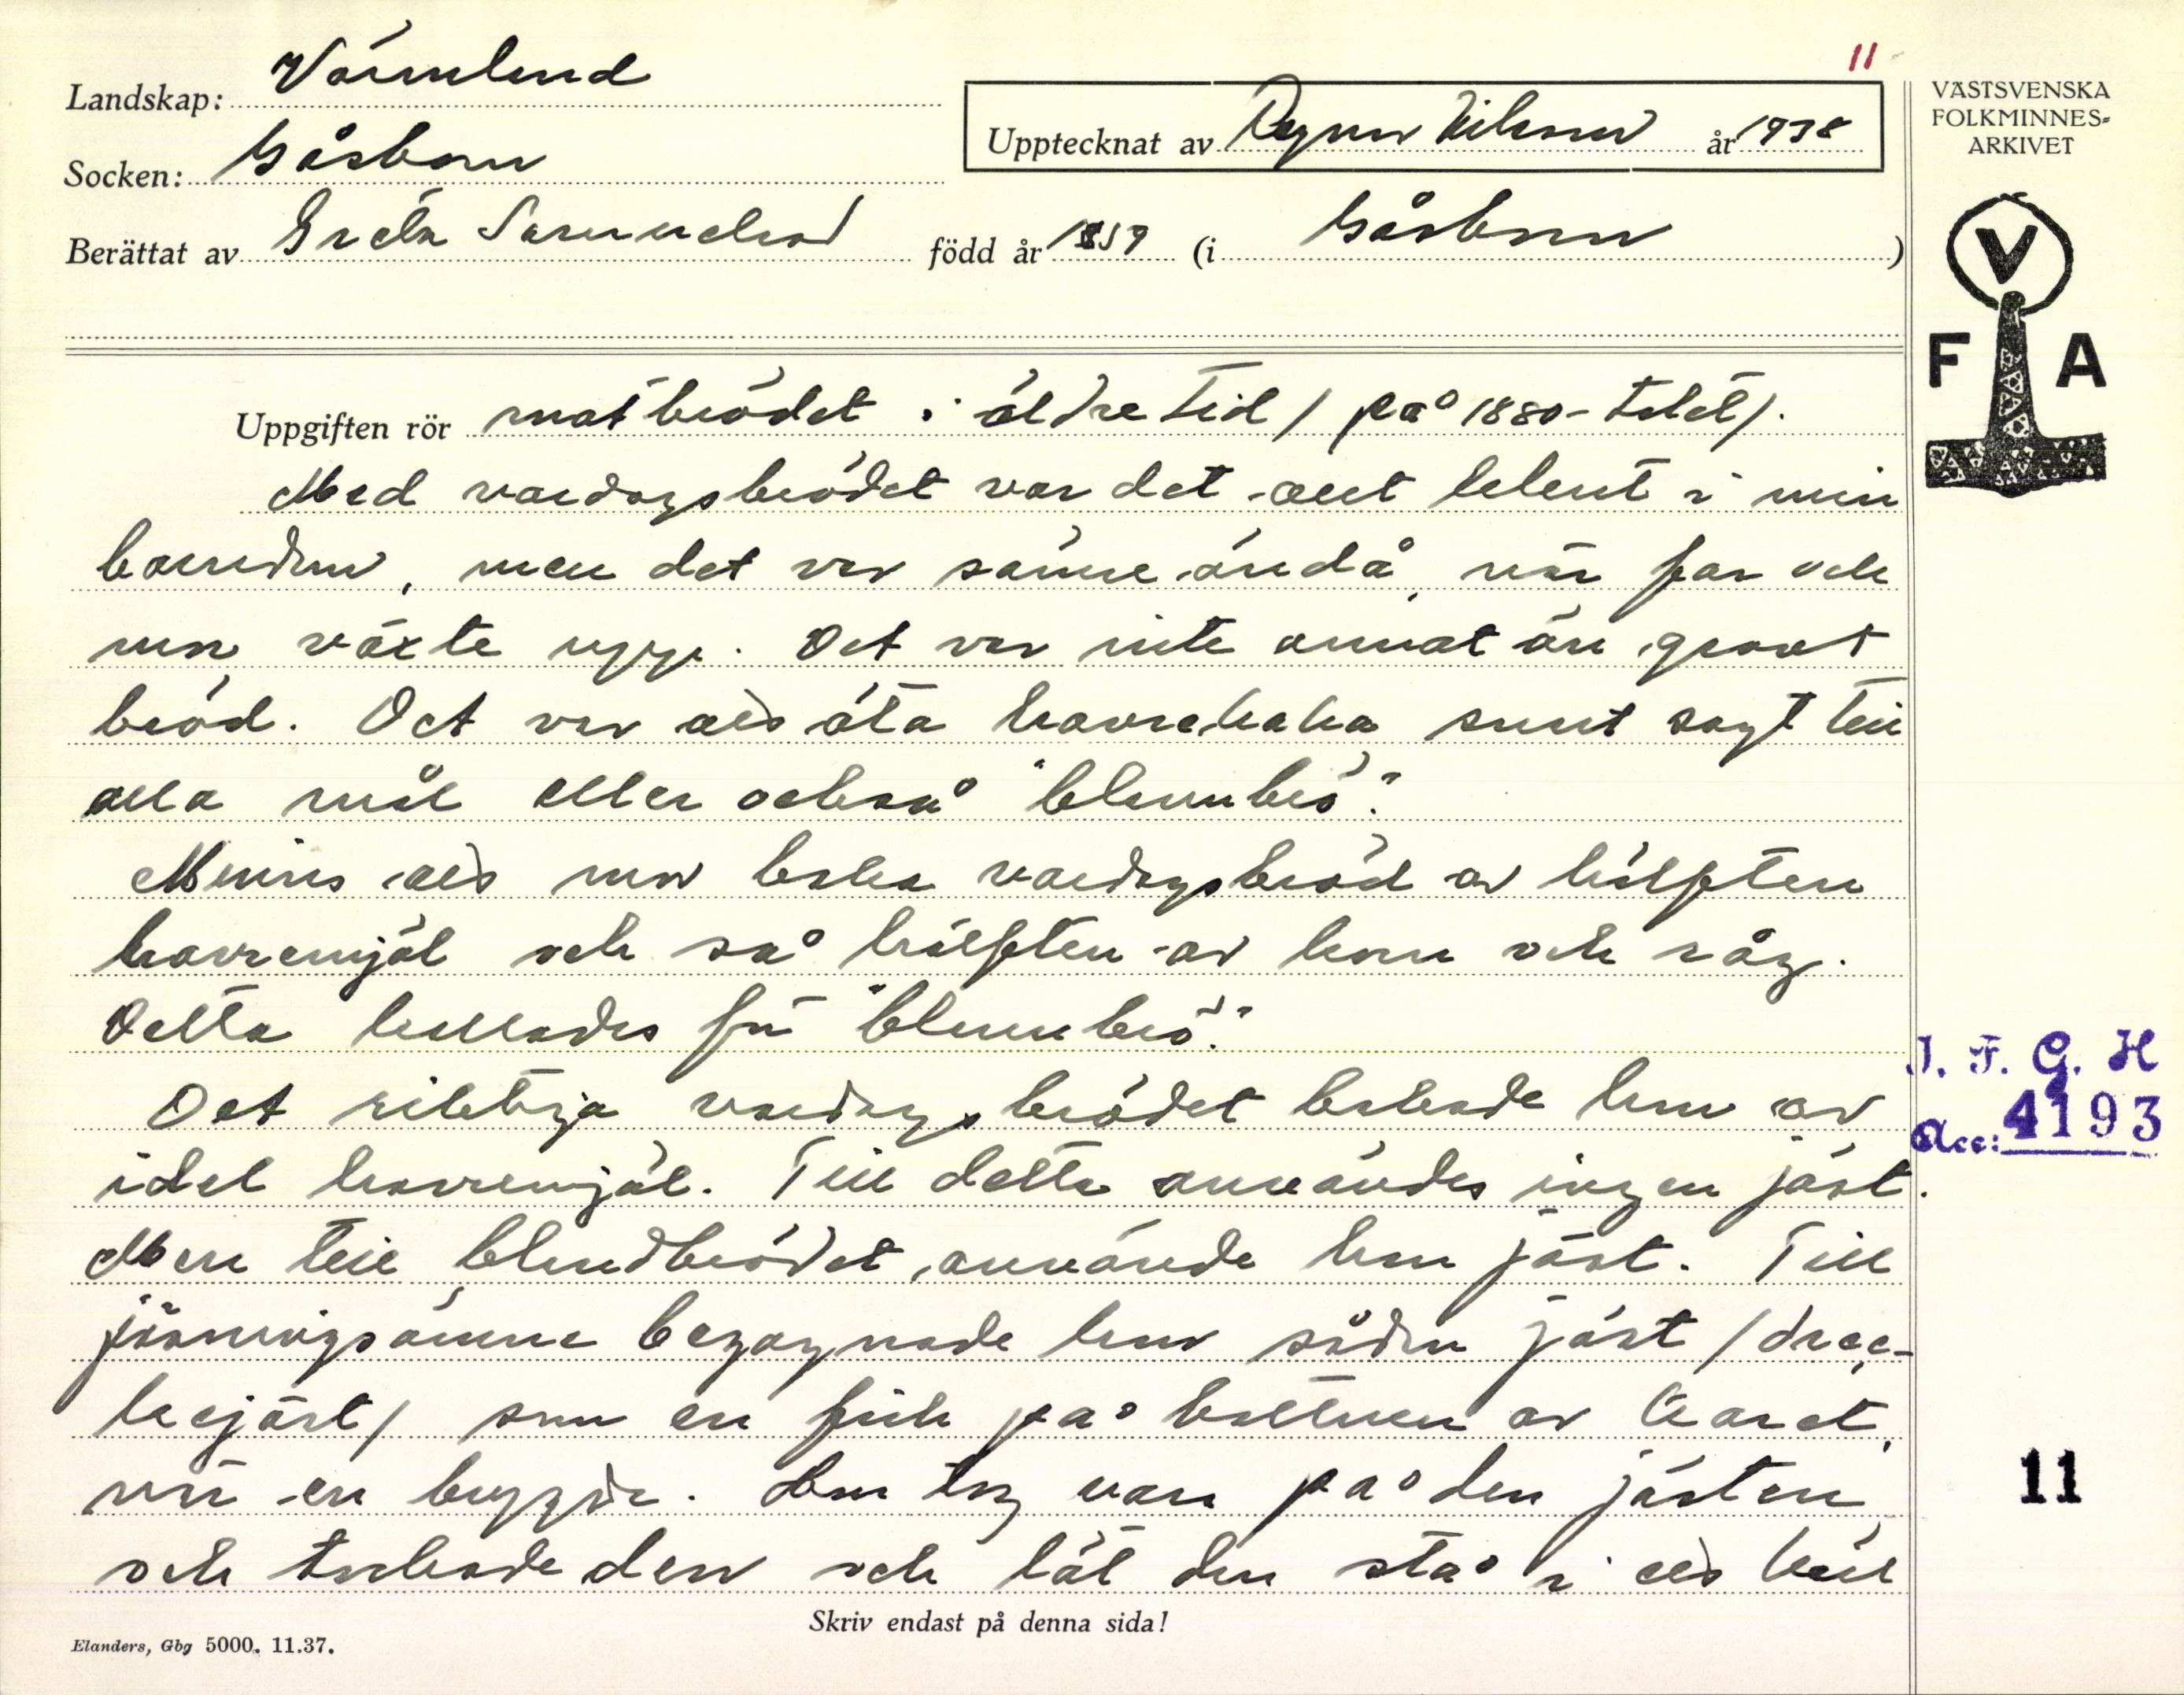 11
Landskap: Värmland
Socken: Gåsborn
Berättat av Greta Samuelsod född år 1859 (i Gåsborn)
Upptecknat av Ragnar Nilsson år 1938
VÄSTSVENSKA
FOLKMINNES-
ARKIVET
V
F A
Uppgiften rör matbrödet i äldre tid / på 1880-talet/.
Med vardagsbrödet var det allt klent i min
barndom, men det var sämre ändå, när far och
mor växte upp. Det var inte annat än grovt
bröd. Det var als äta havrekaka sunt sagt till
alla mål eller också "blannbrö".
Minns als mor baka vardagsbröd av hälften
havremjöl och så hälften av korn och råg.
Detta kallades för "blannbrö".
Det riktiga vardagsbrödet bakade hon av
idel havremjöl. Till detta användes ingen jäst.
Men till blandbrödet använde hon jäst. Till
jäsningsämne begagnade hon sådan jäst /dric-
kejäst/ som en fick på bottnen av karet,
när en bryggde. Hon tog vara på den jästen
och torkade den och lät den stå i als kärl
J. F. G. H
Acc: 4193
11
Skriv endast på denna sida!
Elanders, Gbg 5000. 11.37.